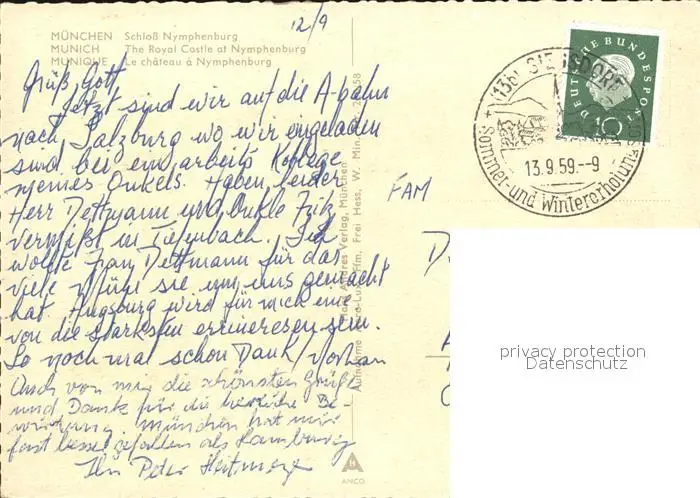 12/9
MÜNCHEN Schloß Nymphenburg
MUNICH The Royal Castle at Nymphenburg
MUNIQUE Le château à Nymphenburg
Grüß Gott
Jetzt sind wir auf die A-bahn
nach Salzburg wo wir engeladen
sind bei ein arbeits Kollege
meines Onkels. Haben leider
Herr Dettmann und Onkle Fritz
vermißt in Tiefenbach. Ich
wollte Frau Dettmann für das
viele Mühe sie um uns gemacht
hat. Augsburg wird für mich eine
von die starksten errineresen sein.
So noch mal schon Dank
Auch von mir die schönsten Grüße
und Dank für die herzliche Be-
wirtung. München hat mir
fast besser gefallen als Hamburg
Ihr Peter
Verlag, München
Frei Hess, W. Min.
FAM
DEUTSCHE BUNDESPOST
10
(13b) SIEGSDORF
13.9.59.-9
Sommer- und Wintererholung
privacy protection
Datenschutz
ANCO